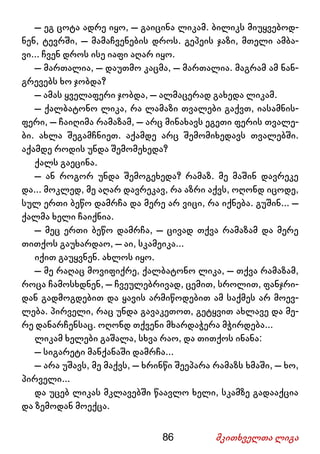 — ეგ ცოტა ადრე იყო, — გაიცინა ლიკამ. ბილიკს მიუყვებოდ-
ნენ, ტევრში, — მამაჩვენების დროს. გეპეის ჯაზი, მთელი ამბა-
ვი... ჩვენ დროს ისე იაფი აღარ იყო.
— მართალია, — დაუთმო კაცმა, — მართალია. მაგრამ ამ ნან-
გრევებს ხო ჯობდა?
— ამას ყველაფერი ჯობდა, — ალმაცერად გახედა ლიკამ.
— ქალბატონო ლიკა, რა ლამაზი თვალები გაქვთ, იასამნის-
ფერი, — ჩაიღიმა რამაზამ, — არც მინახავს ეგეთი ფერის თვალე-
ბი. ახლა შეგამჩნიეთ. აქამდე არც შემომიხედავს თვალებში.
აქამდე როდის უნდა შემომეხედა?
ქალს გაეცინა.
— ან როგორ უნდა შემოგეხედა? რამაზ. მე მაშინ დავრეკე
და... მოკლედ, მე აღარ დავრეკავ, რა აზრი აქვს, ოღონდ იცოდე,
სულ ერთი ბეწო დამრჩა და მერე არ ვიცი, რა იქნება. გუშინ... —
ქალმა ხელი ჩაიქნია.
— მეც ერთი ბეწო დამრჩა, — ცივად თქვა რამაზამ და მერე
თითქოს გაუხარდაო, — აი, სკამეიკა...
იქით გაუყვნენ. ახლოს იყო.
— მე რაღაც მოვიფიქრე, ქალბატონო ლიკა, — თქვა რამაზამ,
როცა ჩამოსხდნენ, — ჩვეულებრივად, ცემით, სროლით, ფანჯრი-
დან გადმოგდებით და ყავის არმიწოდებით ამ საქმეს არ მოევ-
ლება. პირველი, რაც უნდა გავაკეთოთ, გეტყვით ახლავე და მე-
რე დანარჩენსაც. ოღონდ თქვენი მხარდაჭერა მჭირდება...
ლიკამ ხელები გაშალა, სხვა რაო, და თითქოს ინანა:
— სიგარეტი მანქანაში დამრჩა...
— არა უშავს, მე მაქვს, — ხრინწი შეეპარა რამაზს ხმაში, — ხო,
პირველი...
და უცებ ლიკას მკლავებში წაავლო ხელი, სკამზე გადააქცია
და ზემოდან მოექცა.
86 მკითხველთა ლიგა